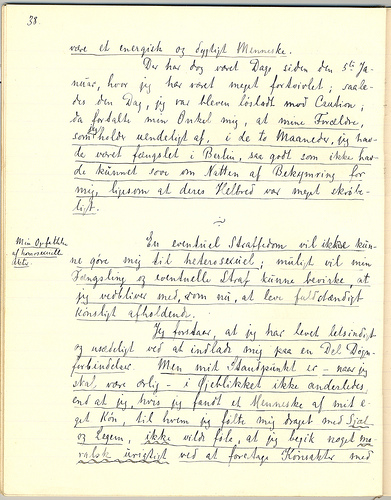 38
være et energisk og dygtigt Menneske.
Der har dog været Dage siden den 5te Ja-
nuar, hvor jeg har været meget fortvivlet; saale-
des den Dag, jeg var bleven løsladt mod Caution;
da fortalte min Onkel mig, at mine Forældre,
som holder uendeligt af, i de to Maaneder, jeg hav-
de været fængslet i Berlin, saa godt som ikke hav-
de kunnet sove om Natten af Bekymring for
mig, ligesom at deres Helbred var meget skrøbe-
ligt.
Min Opfattelse
af homosexuelle
Akter.
En eventuel Straffedom vil ikke kun-
ne gøre mig til heterosexuel; muligt vil min
Fængsling og eventuelle Straf kunne bevirke, at
jeg vedbliver med, som nu, at leve fuldstændigt
kønsligt afholdende.
Jeg forstaar, at jeg har levet letsindigt
og usædeligt ved at indlade mig paa en Del Døgn-
forbindelser. Men mit Standpunkt er – naar jeg
skal være ærlig – i Øjeblikket ikke anderledes,
end at jeg, hvis jeg fandt et Menneske af mit e-
get Køn, til hvem jeg følte mig draget med Sjæl
og Legem, ikke vilde føle, at jeg begik noget mo-
ralsk urigtigt ved at foretage Kønsakter med